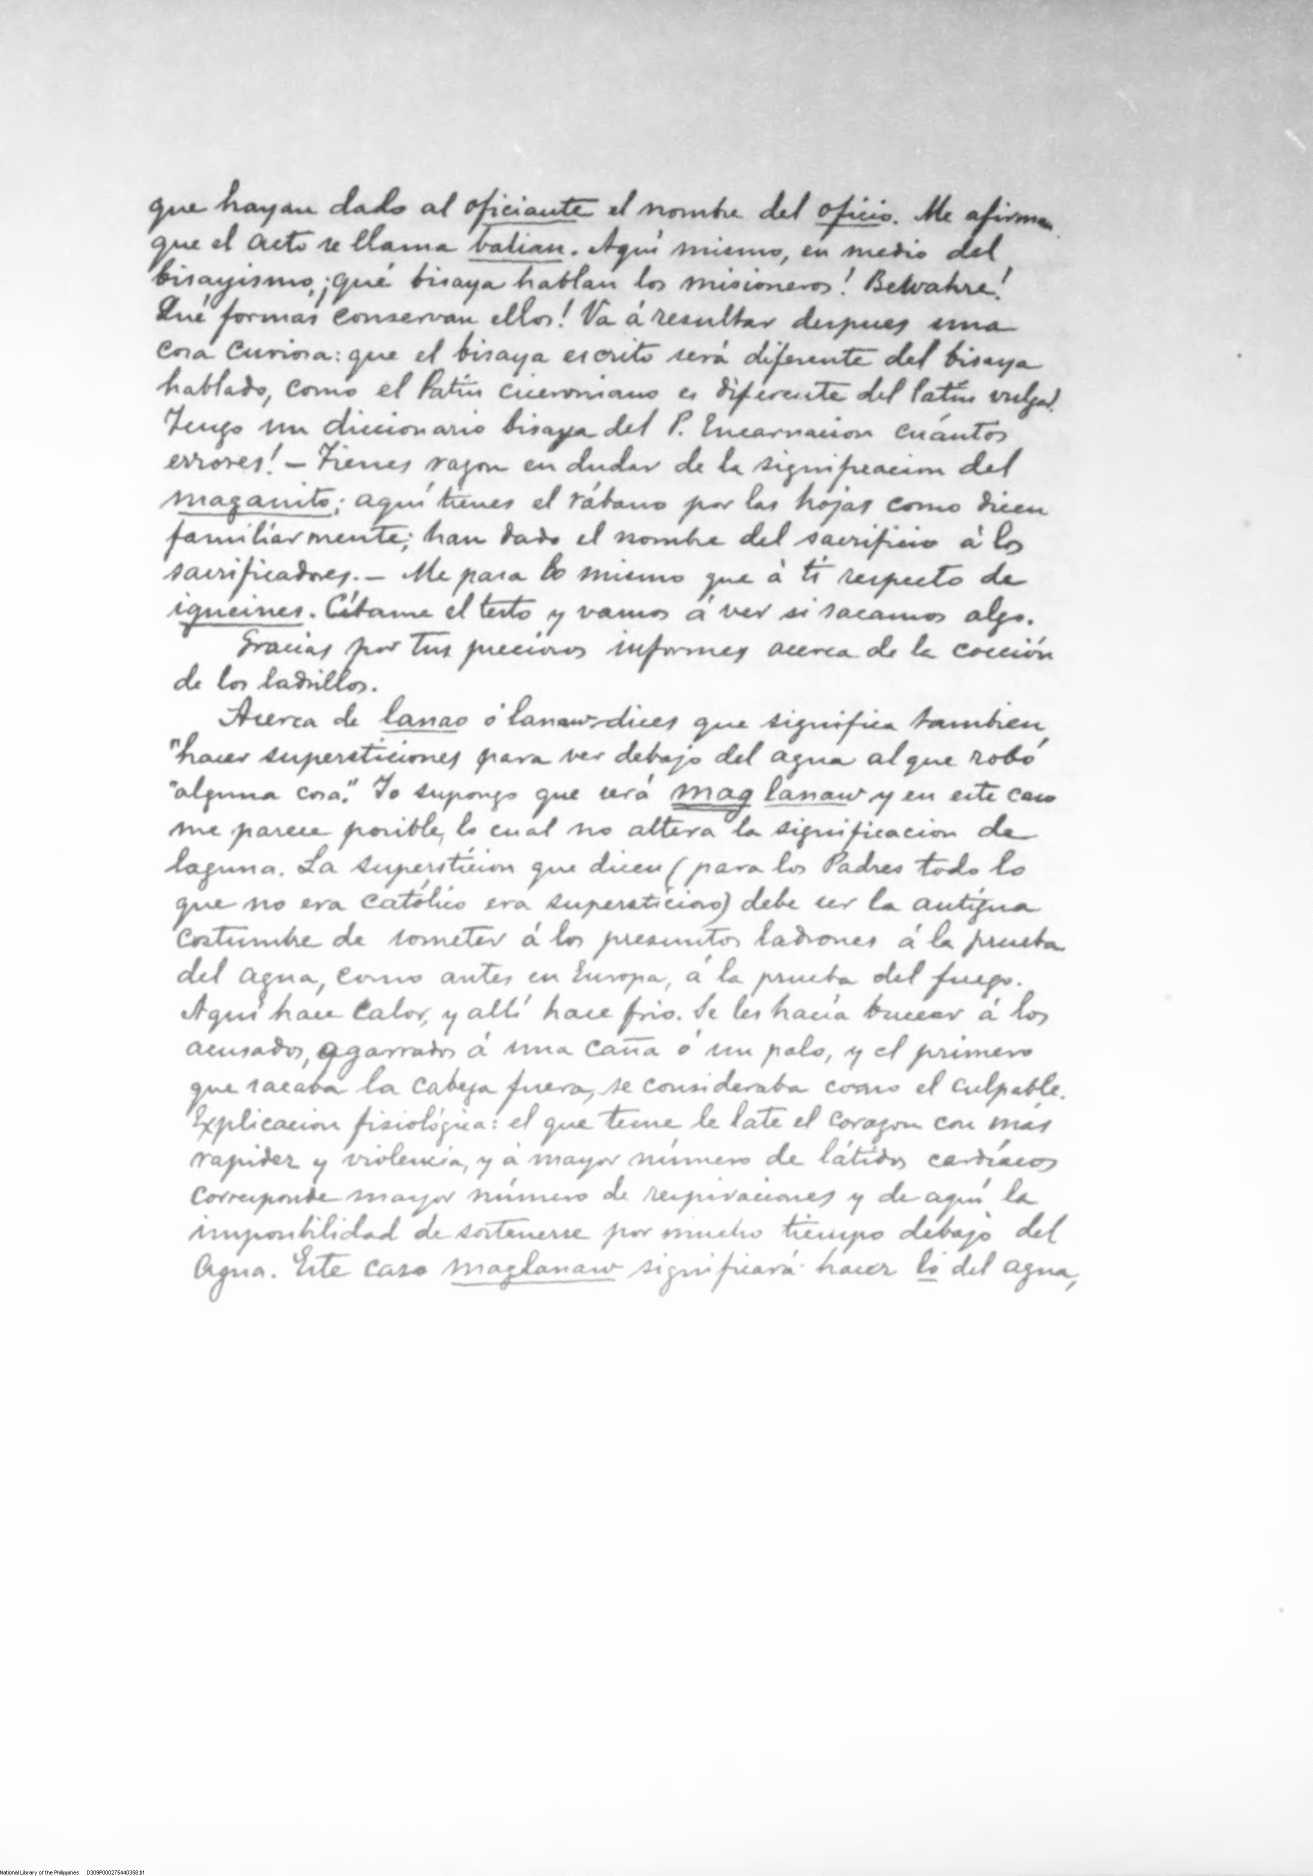 que hayan dado al oficiante el nombre del oficio. Me afirma
que el acto se llama balian. Aquí mismo, en medio del
bisayismo, ¡qué bisaya hablan los misioneros! Bewahre!
Qué formas conservan ellos! Va á resultar despues una
cosa curiosa: que el bisaya escrito será diferente del bisaya
hablado, como el latín ciceroniano es diferente del latín vulgar.
Tengo un diccionario bisaya del P. Encarnacion cuántos
errores! — Tienes razon en dudar de la significacion del
maganito; aquí tienes el rábano por las hojas como dicen
familiármente; han dado el nombre del sacrificio á los
sacrificadores. — Me pasa lo mismo que á tí respecto de
igueines. Cítame el testo y vamos á ver si sacamos algo.
Gracias por tus preciosos informes acerca de la cocción
de los ladrillos.
Acerca de lanao ó lanaw, dices que significa tambien
"hacer supersticiones para ver debajo del agua al que robó
"alguna cosa." Yo supongo que será mag lanaw y en este caso
me parece posible, lo cual no altera la significacion de
laguna. La supersticion que dicen (para los Padres todo lo
que no era católico era supersticioso) debe ser la antigua
costumbre de someter á los presuntos ladrones á la prueba
del agua, como antes en Europa, á la prueba del fuego.
Aquí hace calor, y allí hace frio. Se les hacía bucear á los
acusados, agarrados á una caña ó un palo, y el primero
que sacaba la cabeza fuera, se consideraba como el culpable.
Explicacion fisiológica: el que teme le late el corazon con más
rapidez y violencia, y á mayor número de látidos cardíacos
corresponde mayor número de respiraciones y de aquí la
imposibilidad de sostenerse por mucho tiempo debajo del
agua. Este caso maglanaw significará hacer lo del agua,
National Library of the Philippines D309P000275440358.tif